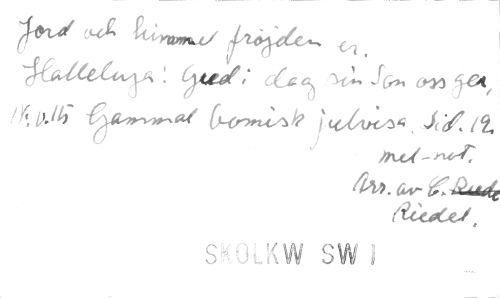 Jord och himmel fröjden er.
Halleluja! Gud i dag sin Son oss ger,
Nr. v. 115 Gammal bömisk julvisa. Sid. 19.
mel-not.
Arr. av C. Riede
Riedel.
SKOLKW SW I